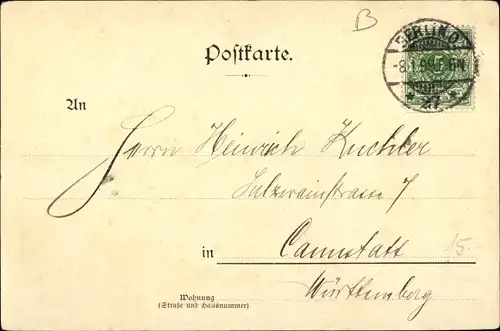 B
Postkarte.
BERLIN O.
-8.1.99. 5-6N
* 27 *
5
An
Herrn Heinrich Kuchler
Sulzerainstrasse 7
in Cannstatt
15.-
Württemberg
Wohnung
(Straße und Hausnummer)